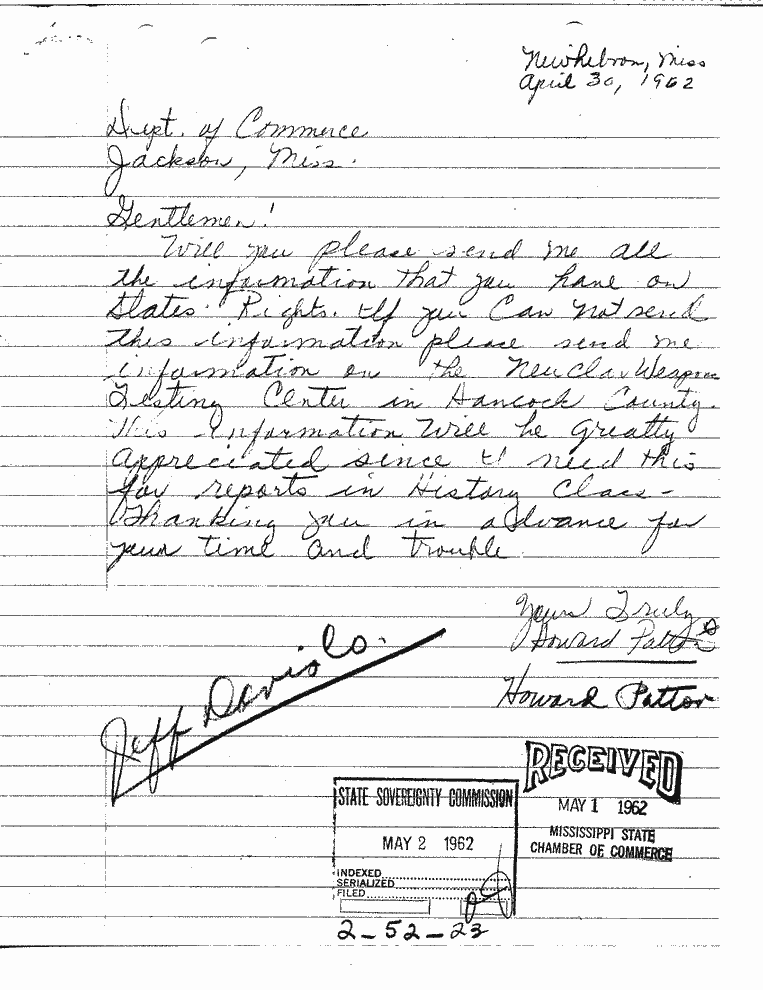 Newhebron, Miss
April 30, 1962
Dept. of Commerce
Jackson, Miss.
Gentlemen!
Will you please send me all
the information that you have on
States Rights. If you Can not send
this information please send me
information on the NeuclarWeapon
Testing Center in Hancock County.
This Information Will be Greatly
Appreciated since I need this
for reports in History Class-
Thanking you in advance for
your time and trouble
Yours Truly
Howard Patton
Howard Patton
Jeff Davis Co.
RECEIVED
MAY 1 1962
MISSISSIPPI STATE
CHAMBER OF COMMERCE
STATE SOVEREIGNTY COMMISSION
MAY 2 1962
INDEXED
SERIALIZED
FILED
2-52-23